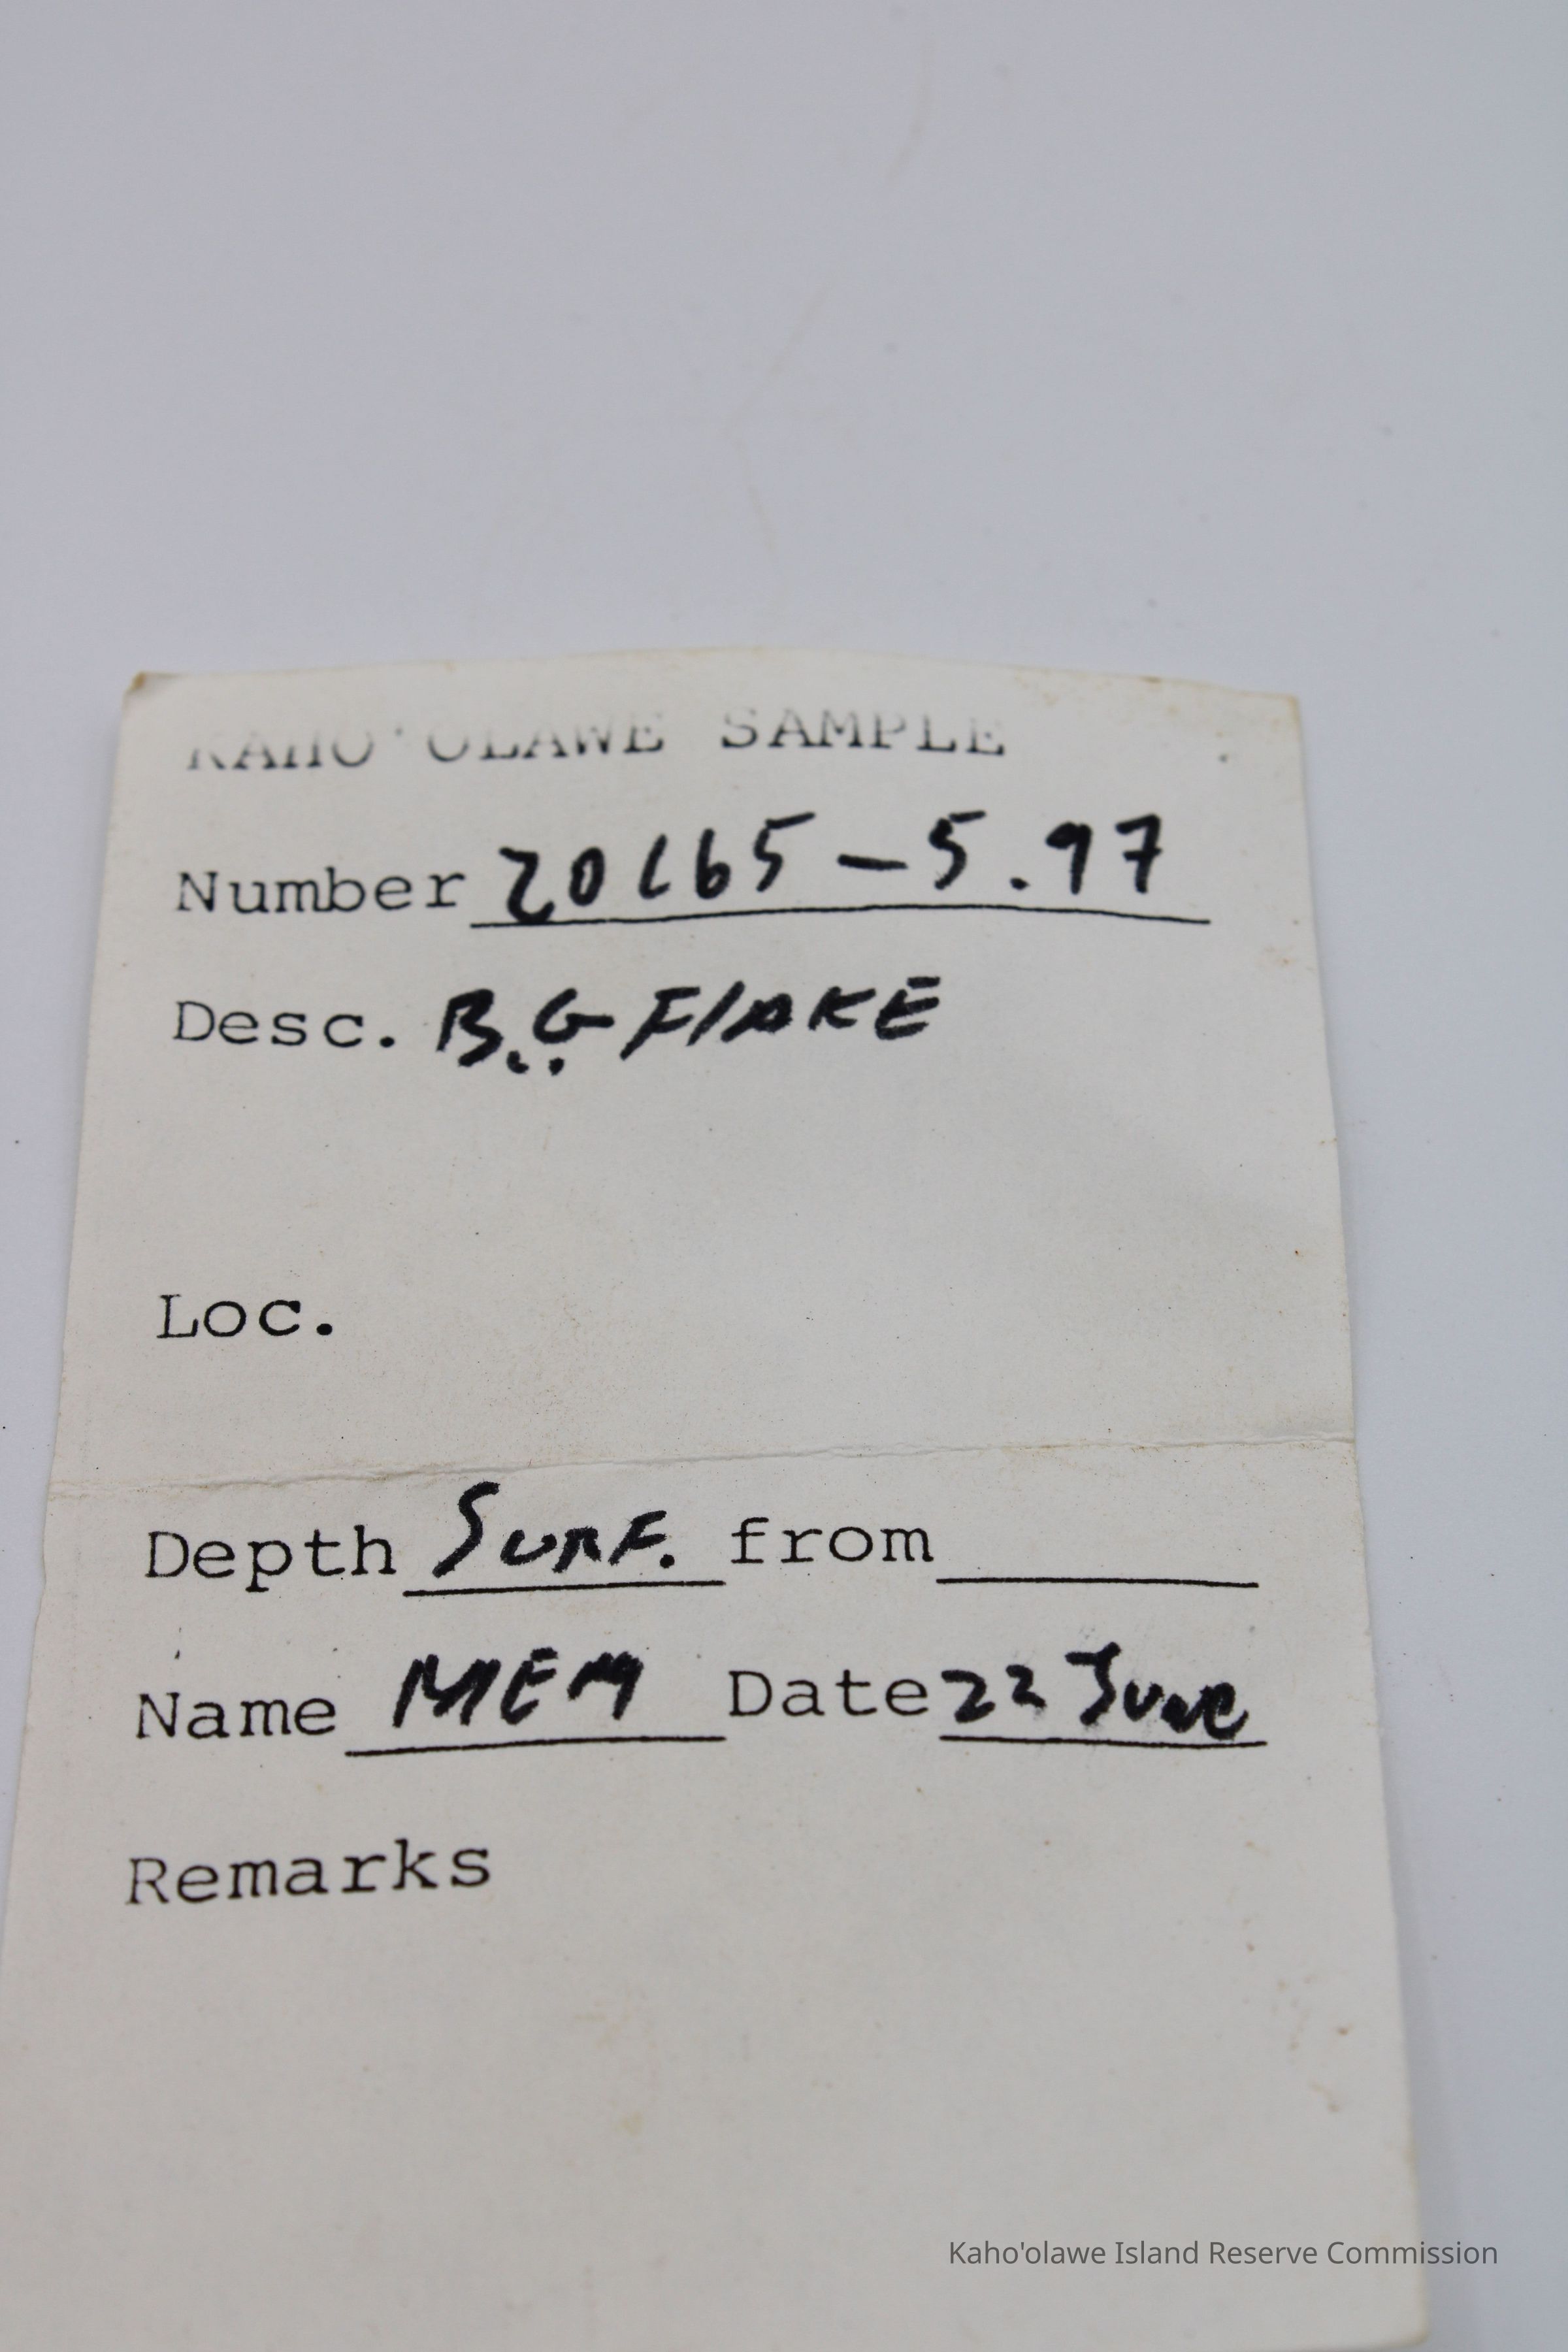 KAHO'OLAWE SAMPLE
Number 20165-5.97
Desc. B.G. FlAKE
Loc.
Depth SURF. from
Name MEM Date 22 June
Remarks
Kaho'olawe Island Reserve Commission